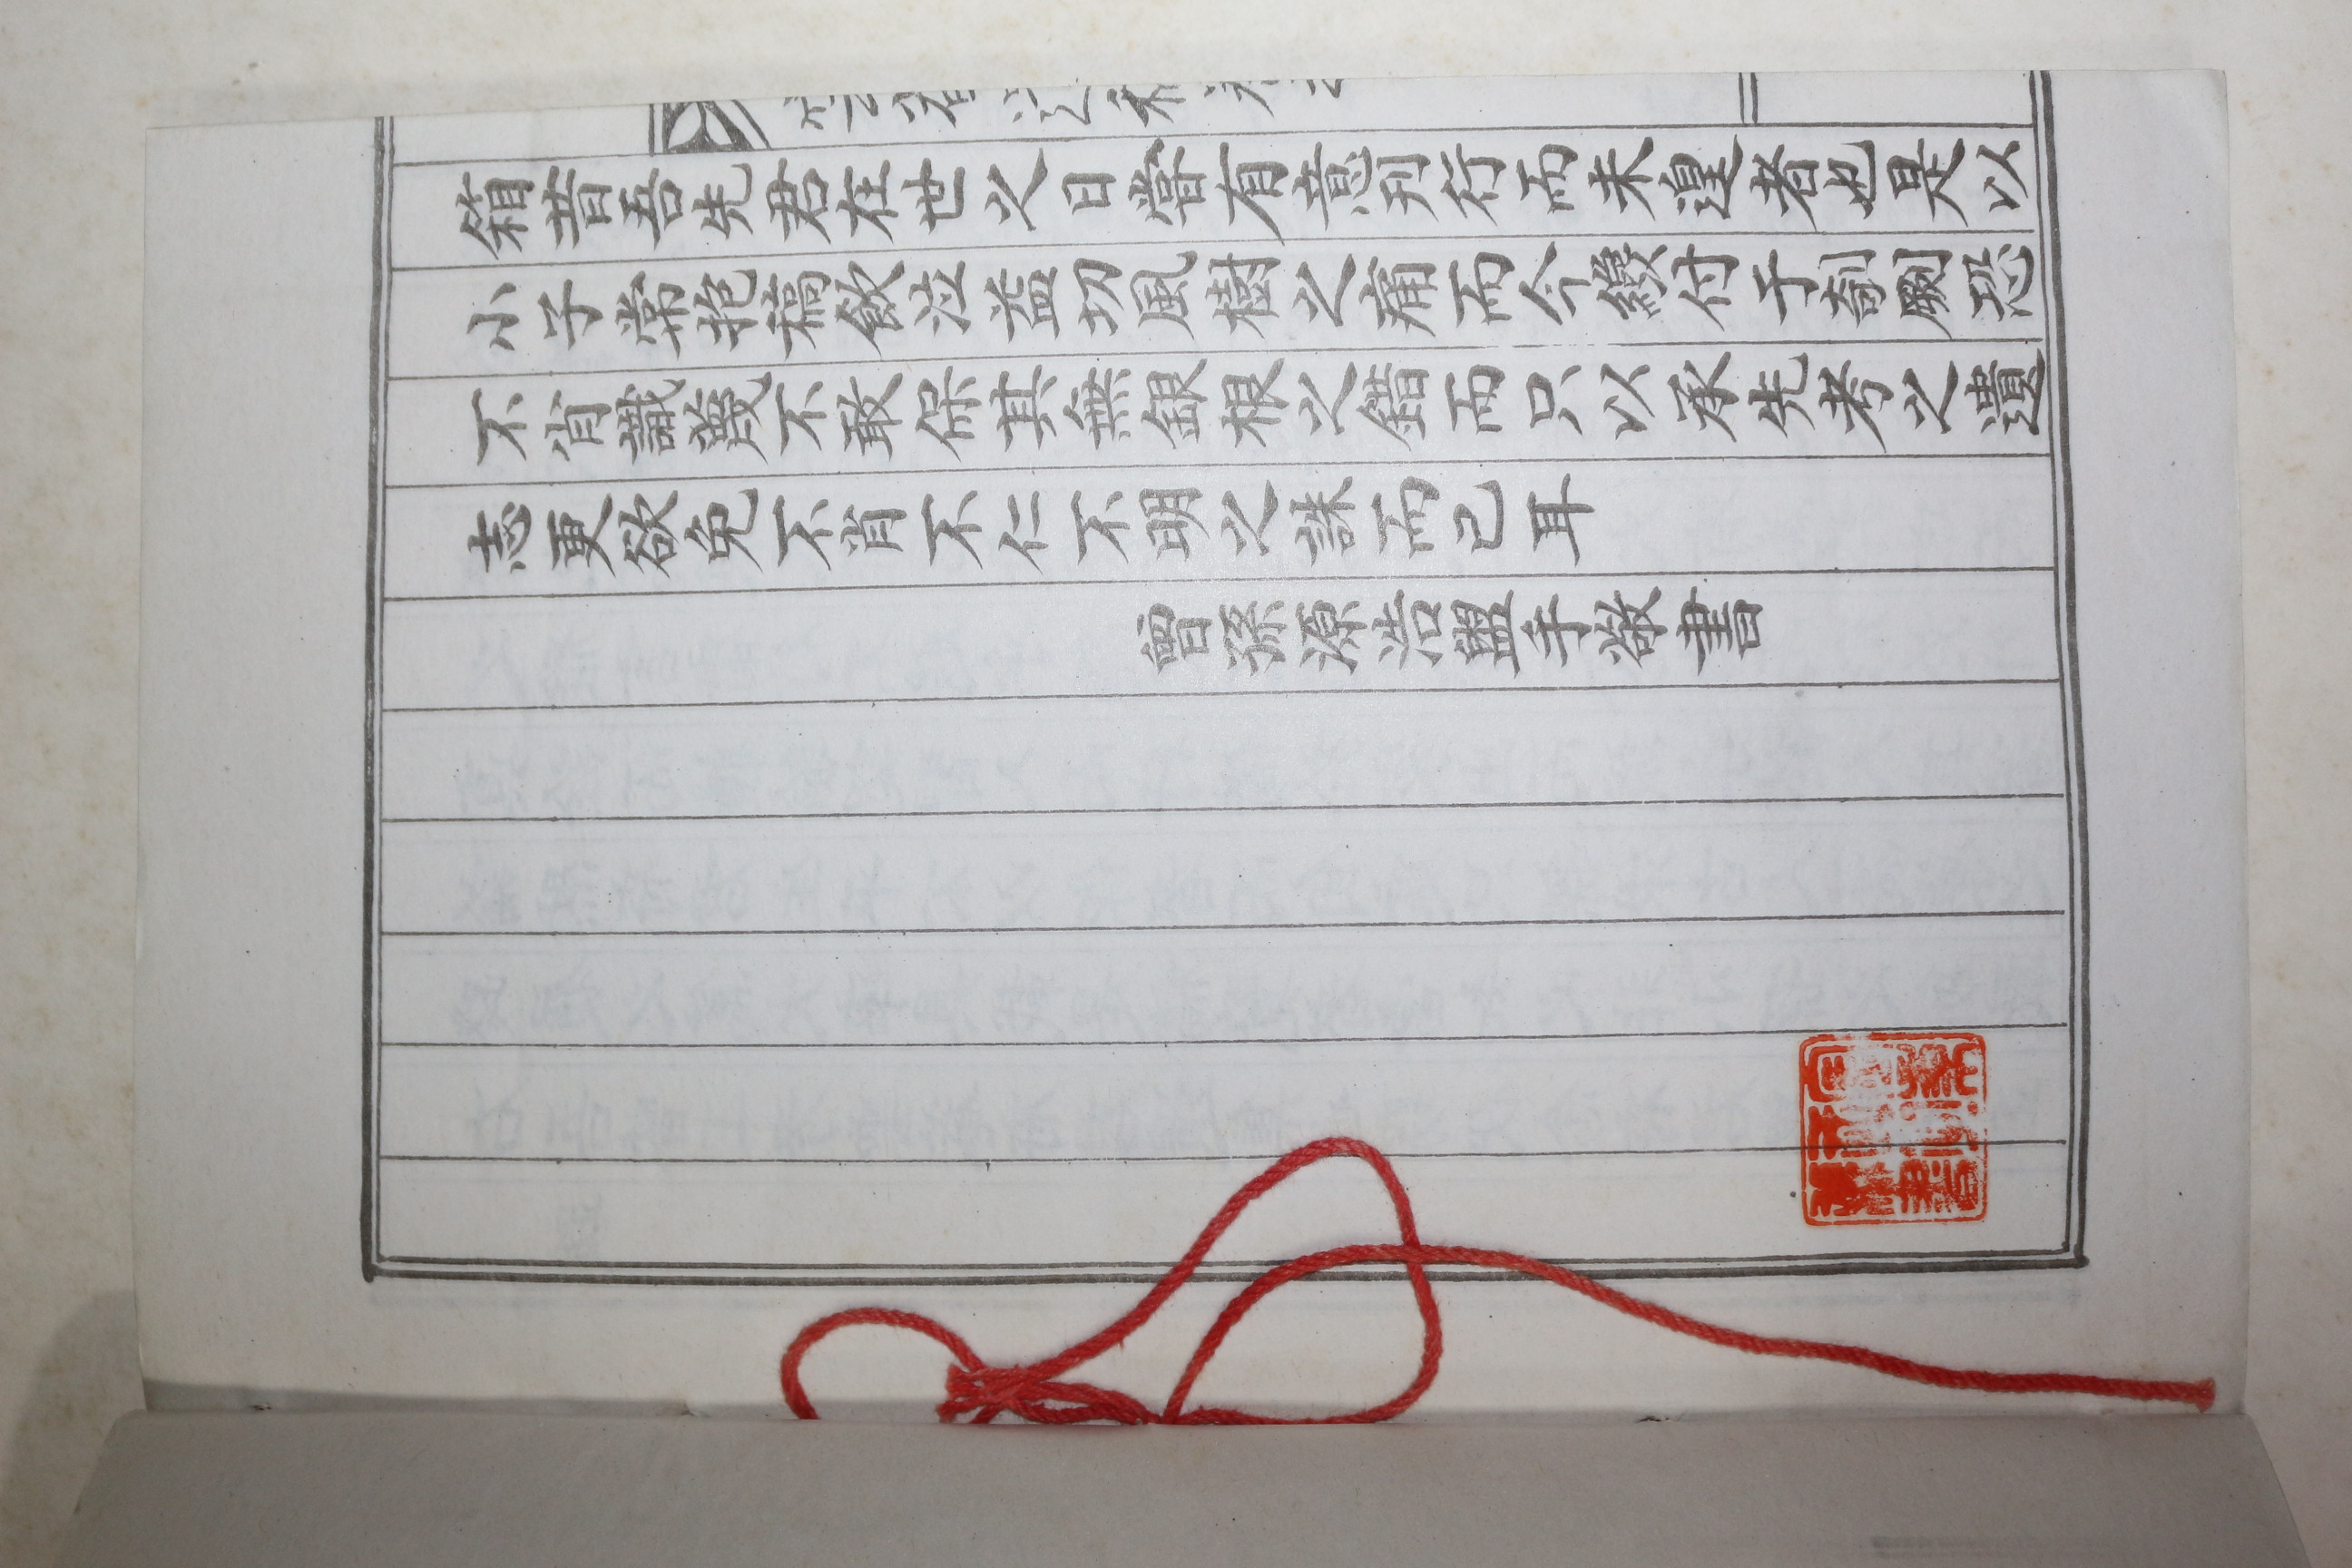 箱昔吾先君在世之日嘗有意刊行而未遑者也是以
小子常抱稿飮泣益切風樹之痛而今纔付于剞劂恐
不肖識蔑不敢保其無銀根之錯而只以承先考之遺
志更欲免不肖不仁不明之誅而已耳
曾孫源浩盥手敬書